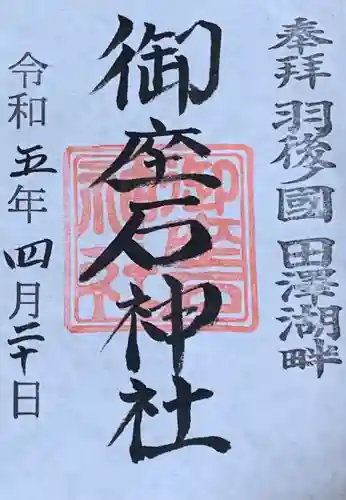 奉拝 羽後ノ國 田澤湖畔
御座石神社
令和五年四月二十日